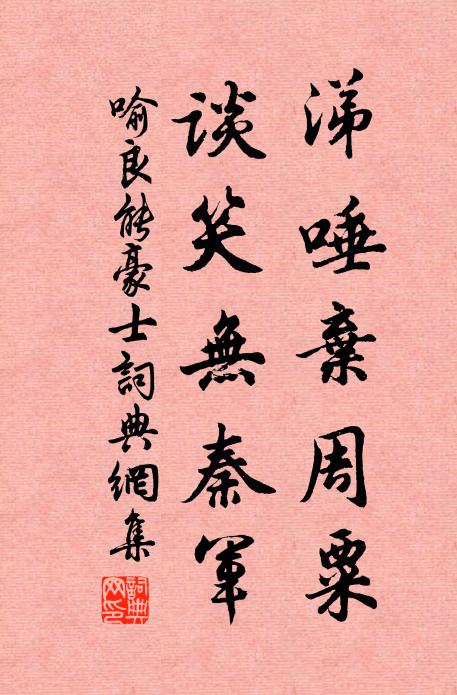 涕唾棄周粟
談笑無秦軍
喻良能豪士詞典網集
詞典網印